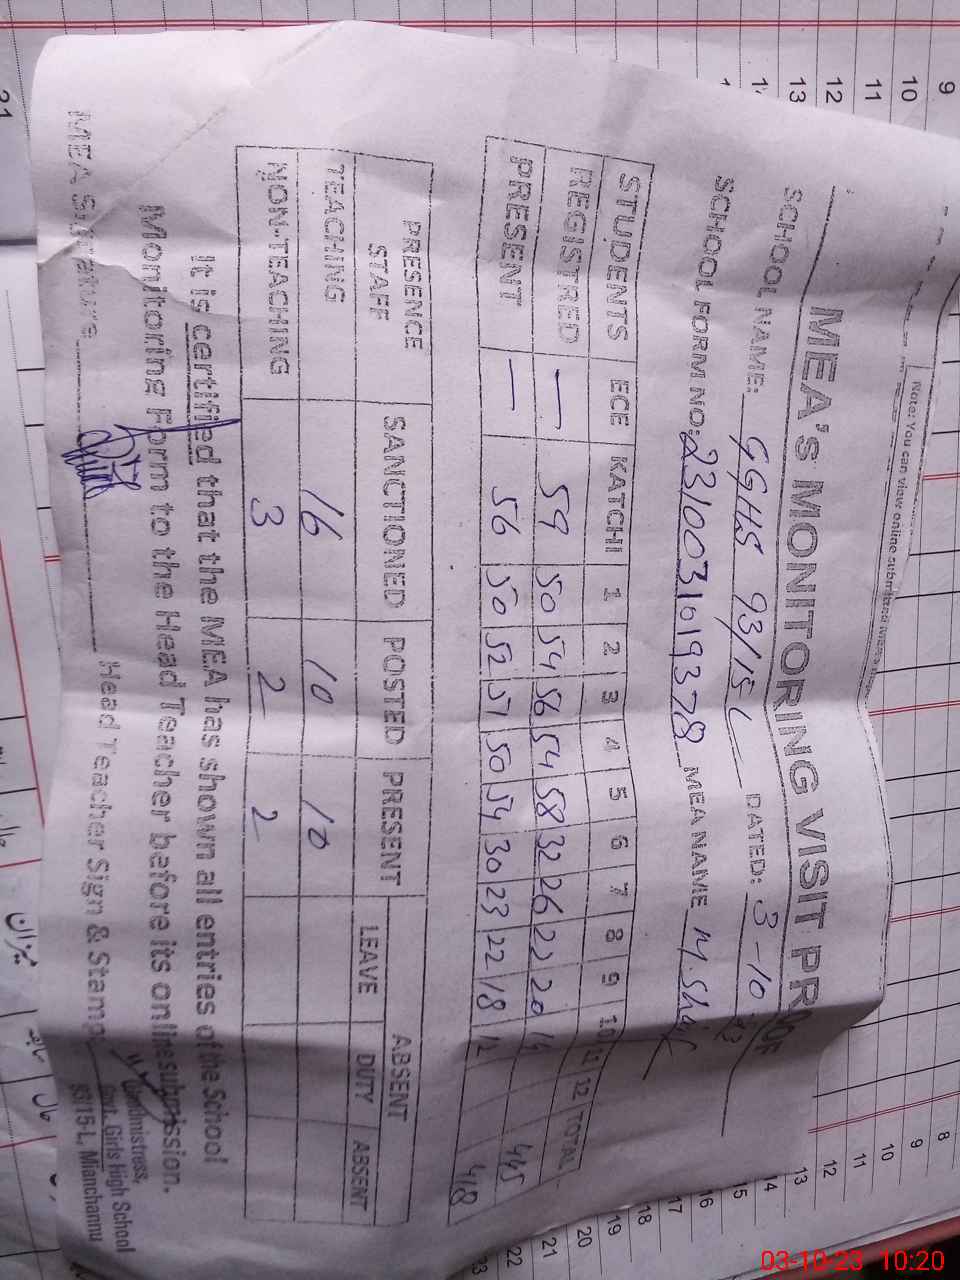 Note: You can view online submitted
MEA's MONITORING VISIT PROOF
SCHOOL NAME: GGHS 93/15 L DATED: 3-10
SCHOOL FORM NO: 2310031019378 MEA NAME M. Sha
STUDENTS ECE KATCHI 1 2 3 4 5 6 7 8 9 10 11 12 TOTAL
REGISTRED — 59 50 54 56 54 58 32 26 22 20 14 445
PRESENT — 56 50 52 51 50 54 30 23 22 18 12 418
PRESENCE STAFF SANCTIONED POSTED PRESENT ABSENT
LEAVE DUTY ABSENT
TEACHING 16 10 10
NON-TEACHING 3 2 2
It is certified that the MEA has shown all entries of the School
Monitoring Form to the Head Teacher before its online submission.
MEA Signature Head Teacher Sign & Stamp
Headmistress,
Govt. Girls High School
93/15-L, Mianchannu
9
10
11
12
13
8
9
10
11
12
13
14
15
16
17
18
19
20
21
22
23
21
میزان
03-10-23 10:20